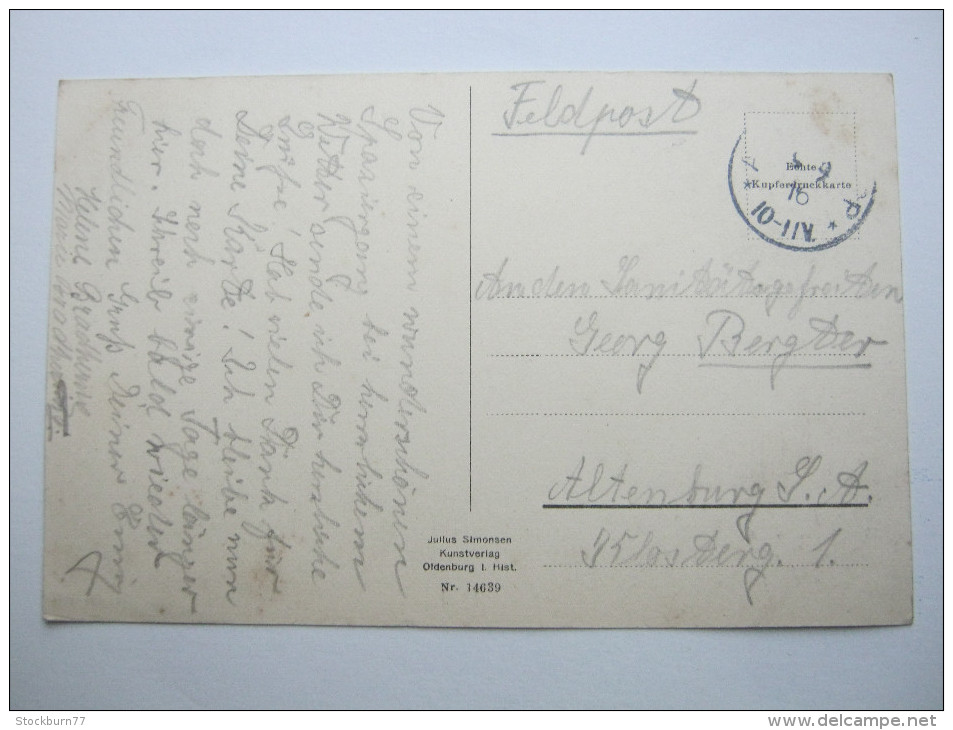 Feldpost
Echte
*Kupferdruckkarte
5 9
16
10-11V.
An den Sanitätsgefreiten
Georg Bergter
Altenburg S. A.
1.
Von einem wunderschönen
Spaziergang bei herrlichem
Wetter sende ich Dir herzliche
Grüße! Hab vielen Dank für
Deine Karte! Ich bleibe nun
doch noch einige Tage länger
hier. Schreib bald wieder
Freundlichen Gruß Deiner
Helene
Julius Simonsen
Kunstverlag
Oldenburg i. Hlst.
Nr. 14639
Stockburn77
delcampe.net